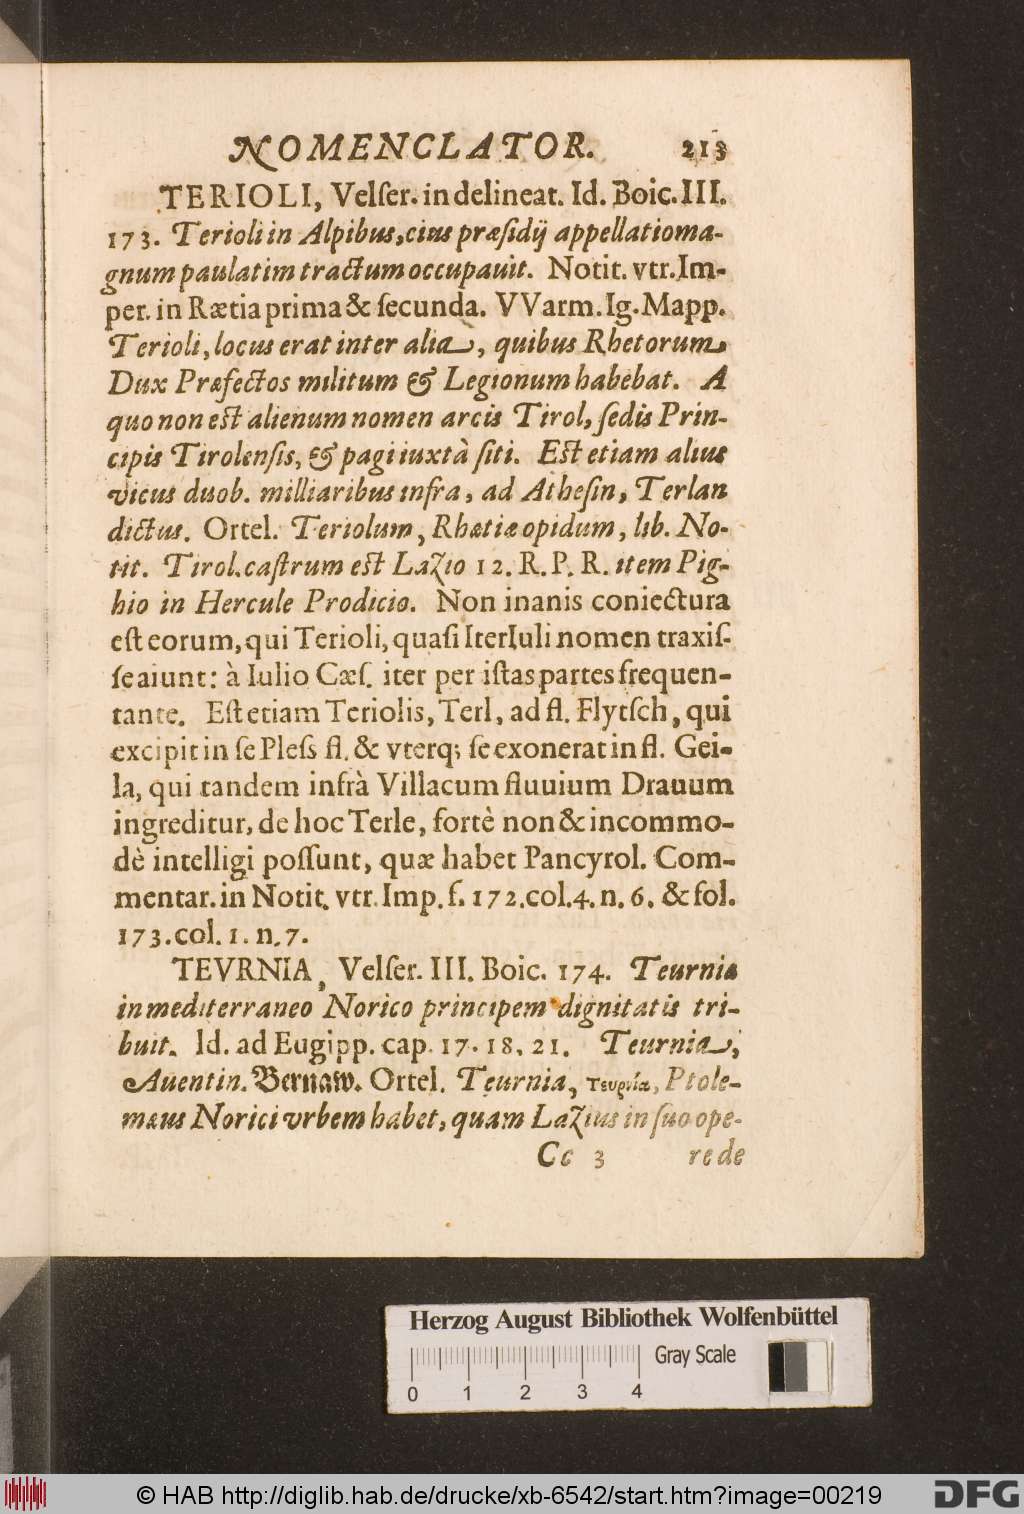 NOMENCLATOR. 213
TERIOLI, Velſer. in delineat. Id. Boic. III.
173. Terioli in Alpibus, cius præſidij appellatio ma-
gnum paulatim tractum occupauit. Notit. vtr. Im-
per. in Rætia prima & ſecunda. VVarm. Ig. Mapp.
Terioli, locus erat inter alia, quibus Rhetorum
Dux Præfectos militum & Legionum habebat. A
quo non eſt alienum nomen arcis Tirol, ſedis Prin-
cipis Tirolenſis, & pagi iuxtà ſiti. Eſt etiam alius
vicus duob. milliaribus infra, ad Atheſin, Terlan
dictus. Ortel. Teriolum, Rhætiæ opidum, lib. No-
tit. Tirol. caſtrum eſt Lazio 12. R. P. R. item Pig-
hio in Hercule Prodicio. Non inanis coniectura
eſt eorum, qui Terioli, quaſi Iter Iuli nomen traxiſ-
ſe aiunt: à Iulio Cæſ. iter per iſtas partes frequen-
tante. Eſt etiam Teriolis, Terl, ad fl. Flytſch, qui
excipit in ſe Pleſs fl. & vterq; ſe exonerat in fl. Gei-
la, qui tandem infrà Villacum fluuium Drauum
ingreditur, de hoc Terle, fortè non & incommo-
dè intelligi poſſunt, quæ habet Pancyrol. Com-
mentar. in Notit. vtr. Imp. f. 172. col. 4. n. 6. & fol.
173. col. 1. n. 7.
TEVRNIA, Velſer. III. Boic. 174. Teurnia
in mediterraneo Norico principem dignitatis tri-
buit. Id. ad Eugipp. cap. 17. 18. 21. Teurnia,
Auentin. Bernaw. Ortel. Teurnia, Τευρνία, Ptole-
mæus Norici vrbem habet, quam Lazius in ſuo ope-
Cc 3 re de
Herzog August Bibliothek Wolfenbüttel
Gray Scale
0 1 2 3 4
© HAB http://diglib.hab.de/drucke/xb-6542/start.htm?image=00219
DFG